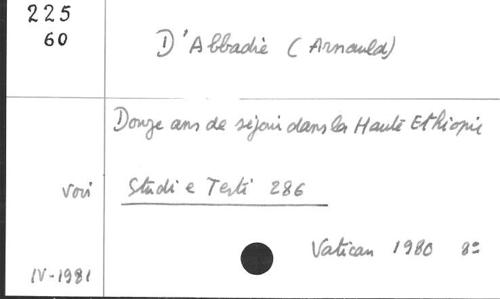 225
60
D'Abbadie (Arnauld)
Douze ans de séjour dans la Haute Ethiopie
voir Studi e Testi 286
Vatican 1980 8º
IV-1981